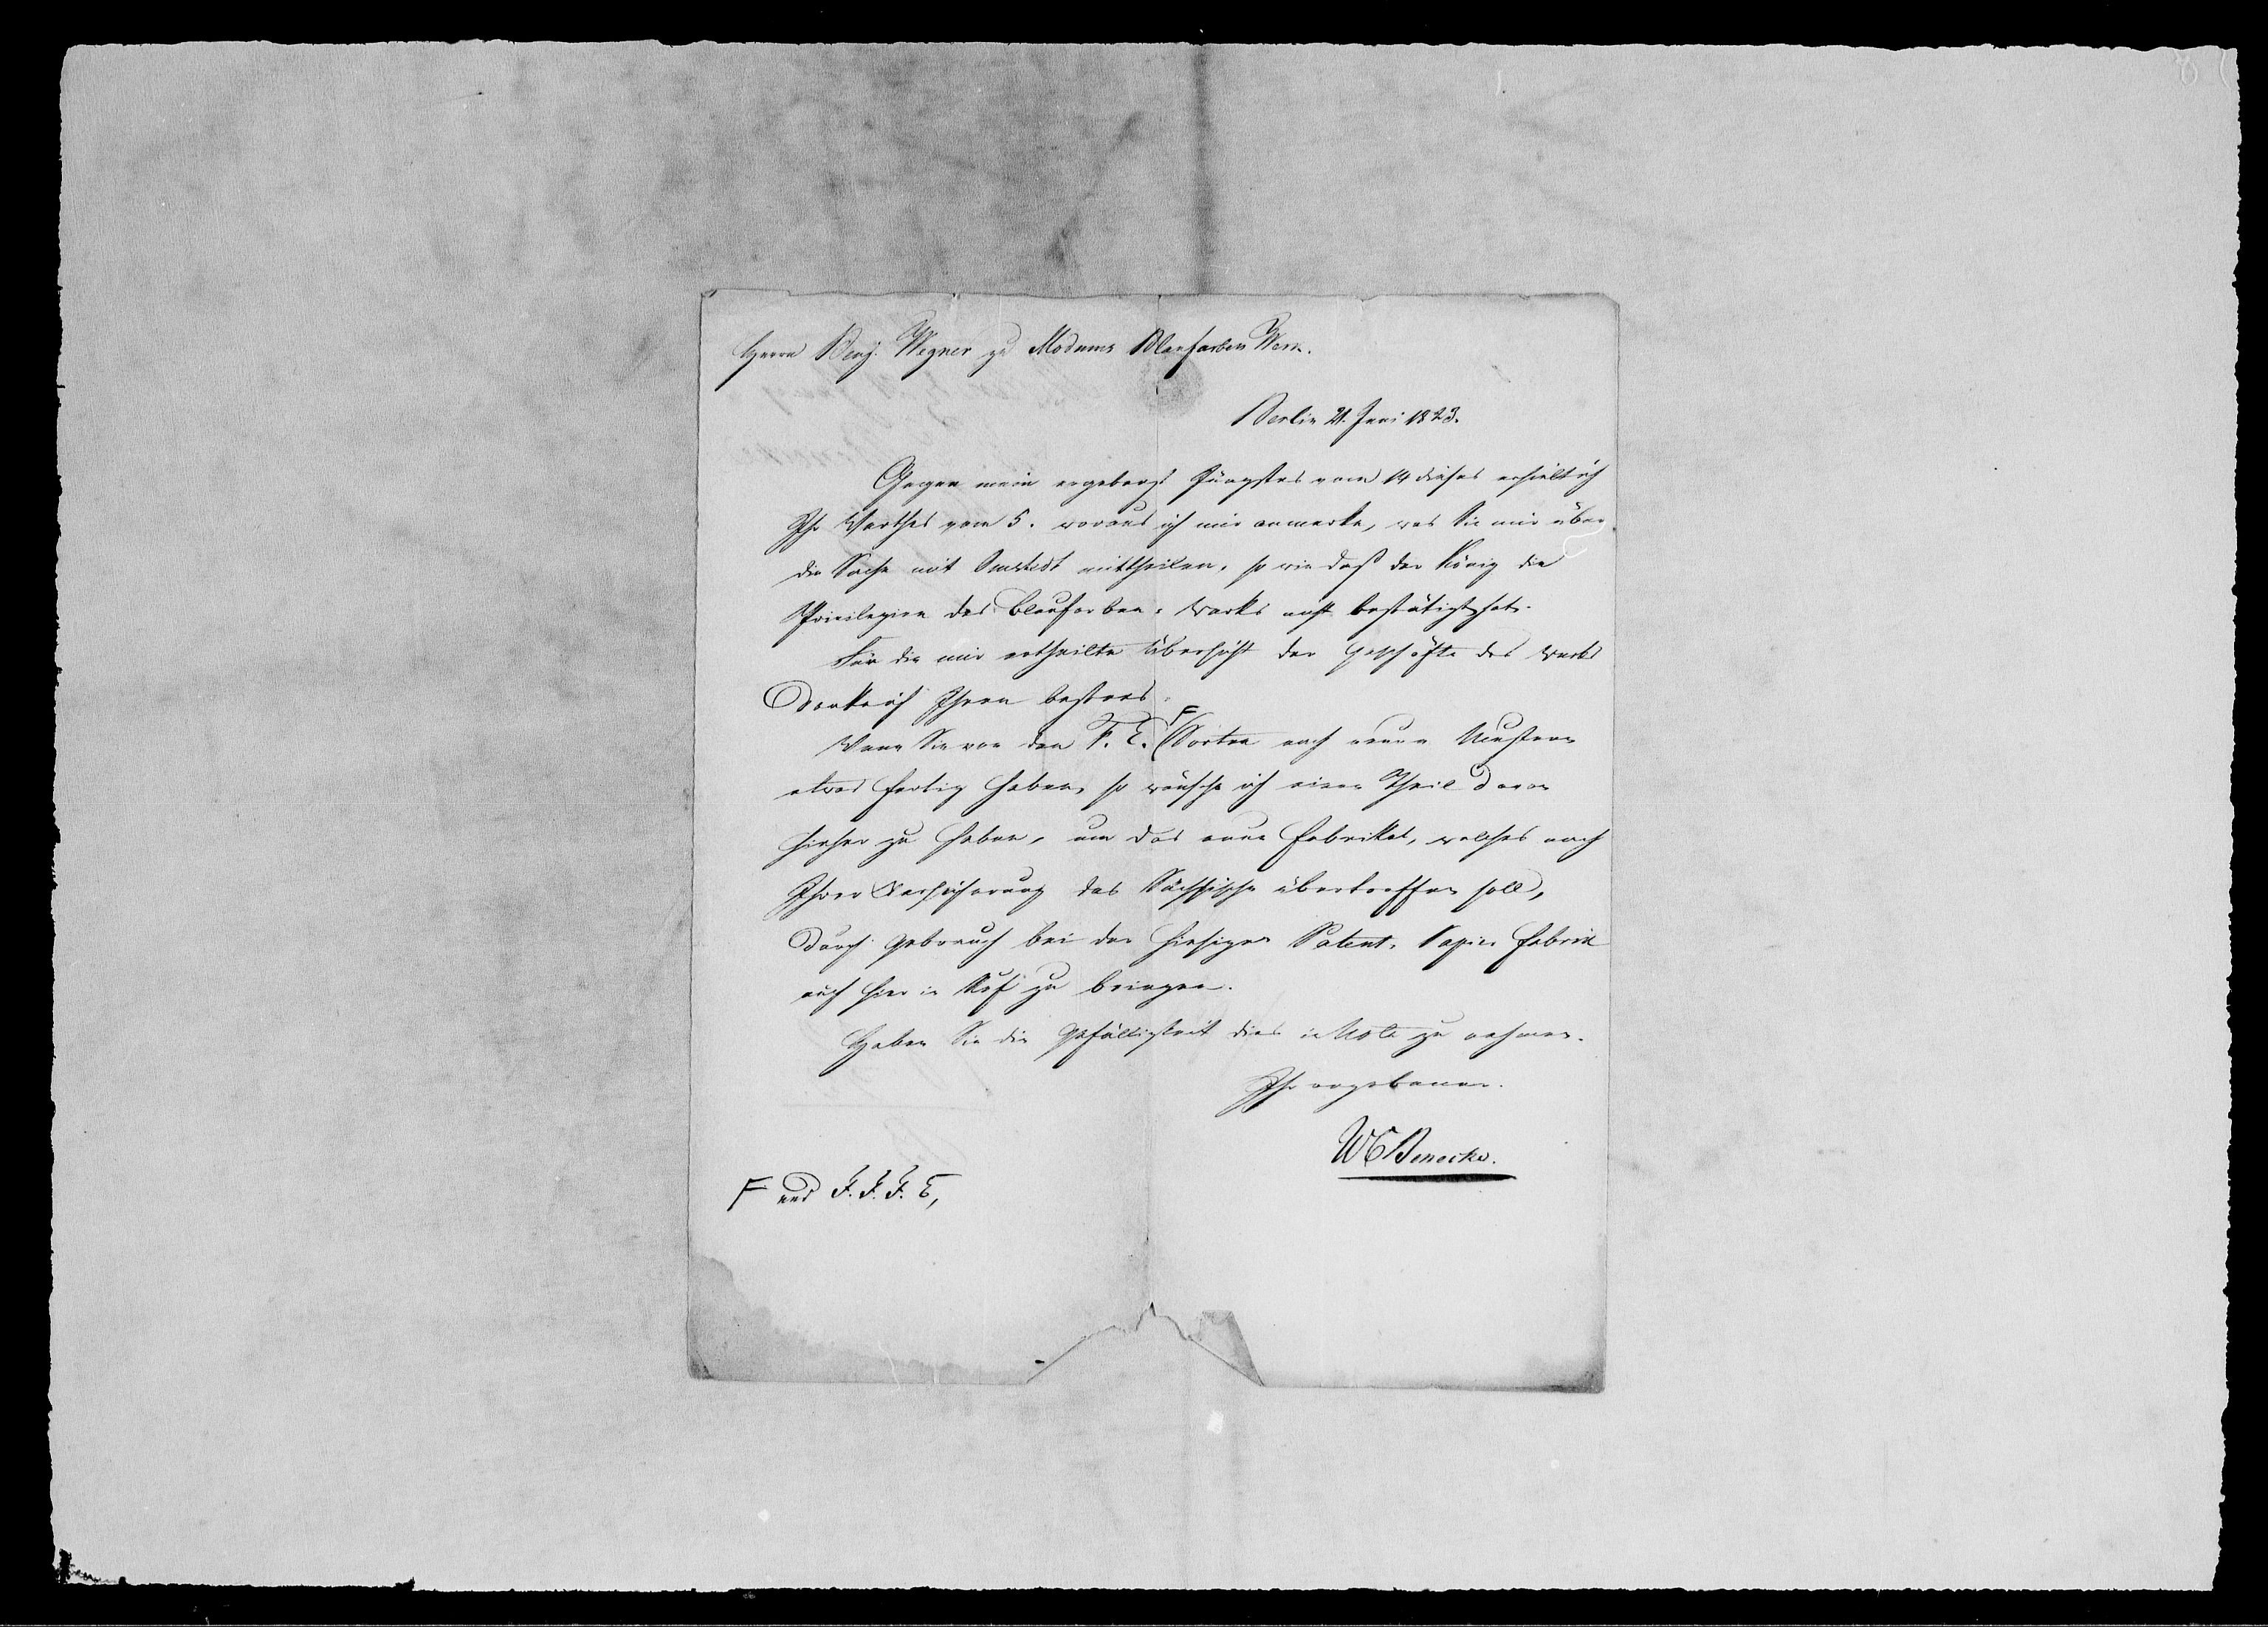 Herrn Benj. Wegner zu Modums Blaufarben Werk.
Berlin 21. Juni 1823.
Gegen mein ergebenst Jüngstes vom 14 dieses erhielt ich
Ihr Werthes vom 5. woraus ich mir anmerke, was Sie mir über
die Sache mit mittheilen, so wie daß der König die
Privilegien des Blaufarben-Werks nicht bestätigt hat.
Für die mir ertheilte Übersicht der Geschäfte des Werks
danke ich Ihnen bestens.
Wenn Sie von den F. E. F Sorten nach neuen Mustern
etwas fertig haben, so wünsche ich einen Theil davon
hieher zu haben, um das neue Fabrikat, welches nach
Ihrer Versicherung das Sächsische übertreffen soll,
durch Gebrauch bei der hiesigen Patent-Papier Fabrik
auch hier in Ruf zu bringen.
Haben Sie die Gefälligkeit dies in Nota zu nehmen.
Ihr ergebener.
W C Benecke.
F und F. F. F. E,